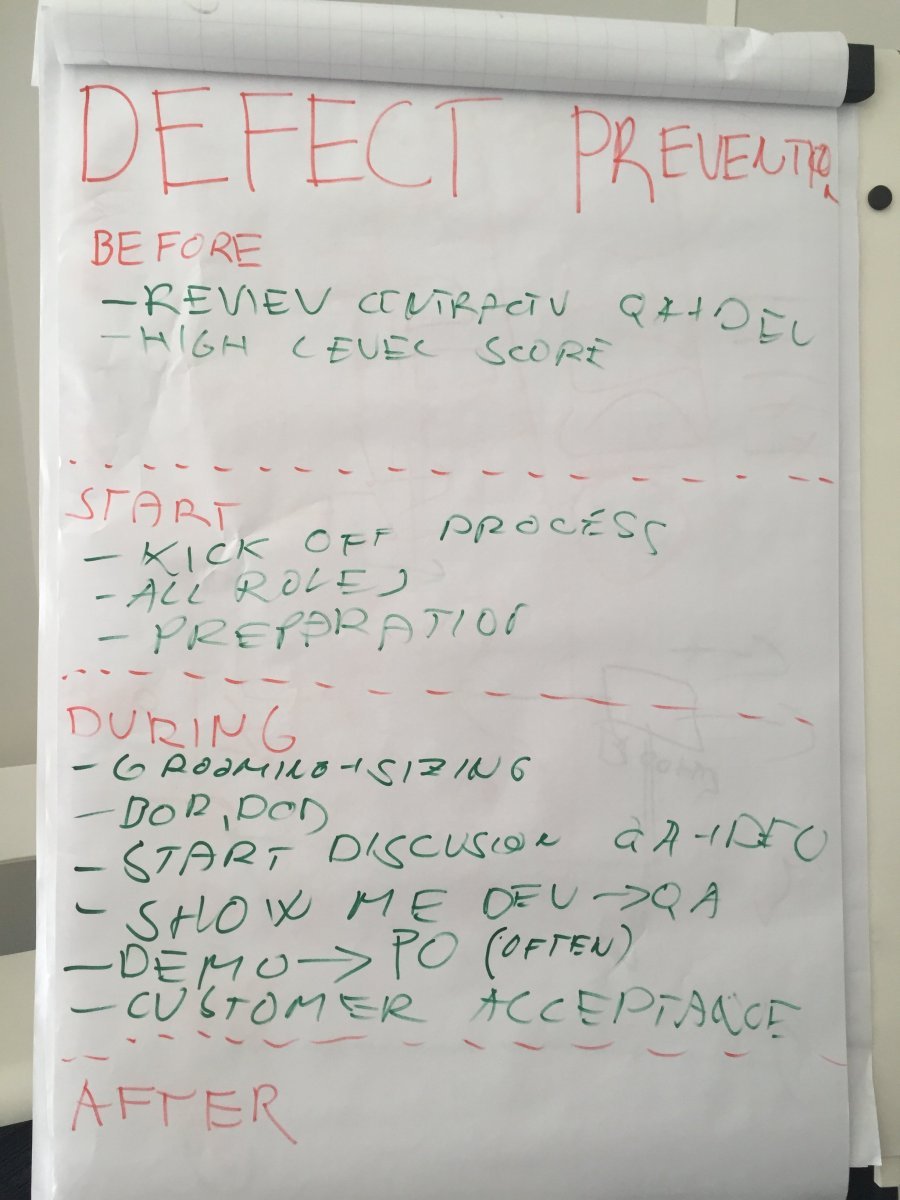 DEFECT PREVENTION
BEFORE
- REVIEW CONTRACTU QA+DEV
- HIGH LEVEL SCORE
START
- KICK OFF PROCESS
- ALL ROLES
- PREPARATION
DURING
- GROOMING+SIZING
- DOR, DOD
- START DISCUSION QA+DEV
- SHOW ME DEV → QA
- DEMO → PO (OFTEN)
- CUSTOMER ACCEPTANCE
AFTER